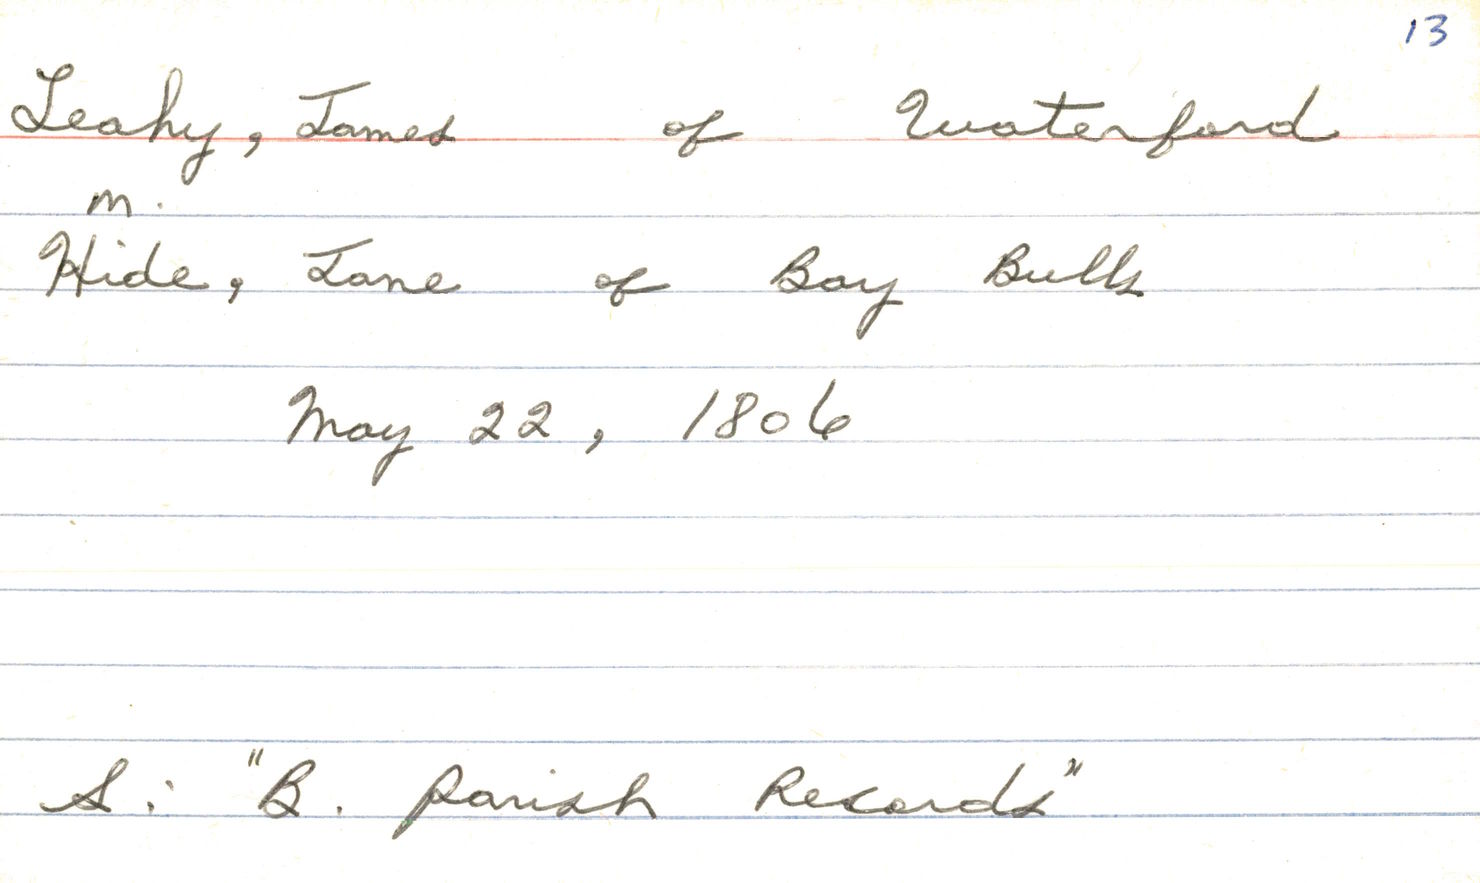 13
Leahy, James of Waterford
m.
Hide, Jane of Bay Bulls
May 22, 1806
S: "B. Parish Records"